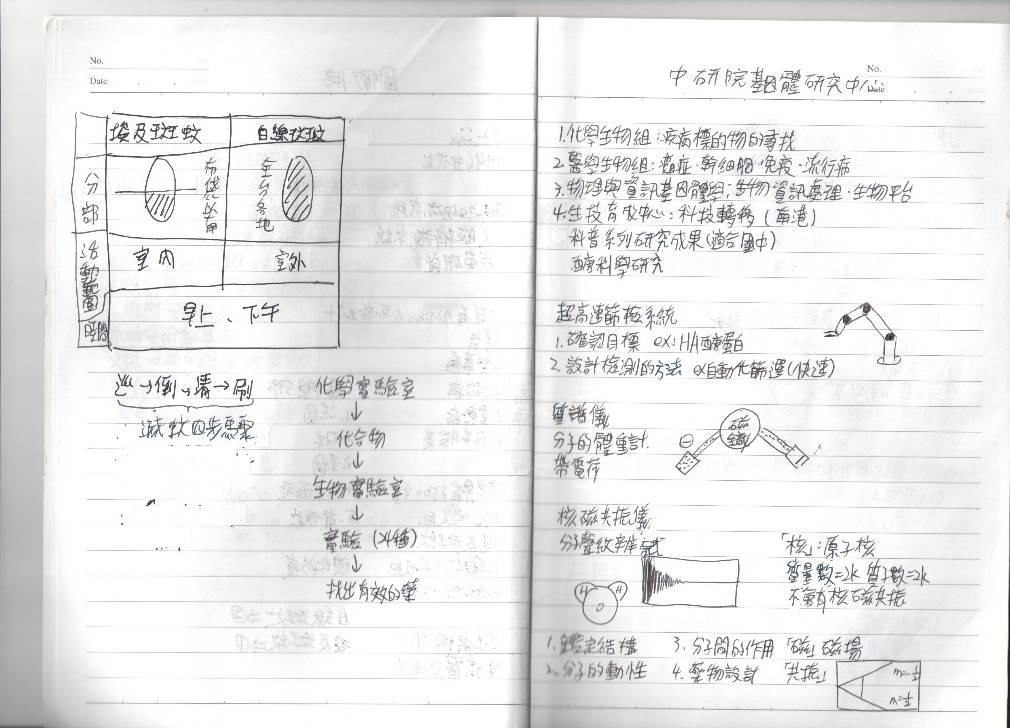 No.
Date
埃及斑蚊 白線斑蚊
分部 布袋以南 全台各地
活動範圍 室內 室外
時間 早上、下午
巡→倒→清→刷
滅蚊四步驟
化學實驗室
↓
化合物
↓
生物實驗室
↓
實驗(*4種)
↓
找出有效的藥
No.
Date
中研院基因體研究中心
1.化學生物組:疾病標的物的尋找
2.醫學生物組:癌症.幹細胞.免疫.流行病
3.物理與資訊基因體學:生物資訊處理.生物平台
4.生技育成中心:科技轉移(南港)
科普系列研究成果(適合國中)
酶科學研究
超高速篩檢系統
1.確認目標 ex:HA醣蛋白
2.設計檢測的方法 ex自動化篩選(快速)
質譜儀
分子的體重計.
帶電荷
磁鐵
⊖
核磁共振儀
分子聲紋辨試
「核」:原子核
質量數=2k 質子數=2k
不會有核磁共振
H H
O
1.鑑定結構 3.分子間的作用 「磁」磁場
2.分子的動性 4.藥物設計 「共振」
m=-½
m=½